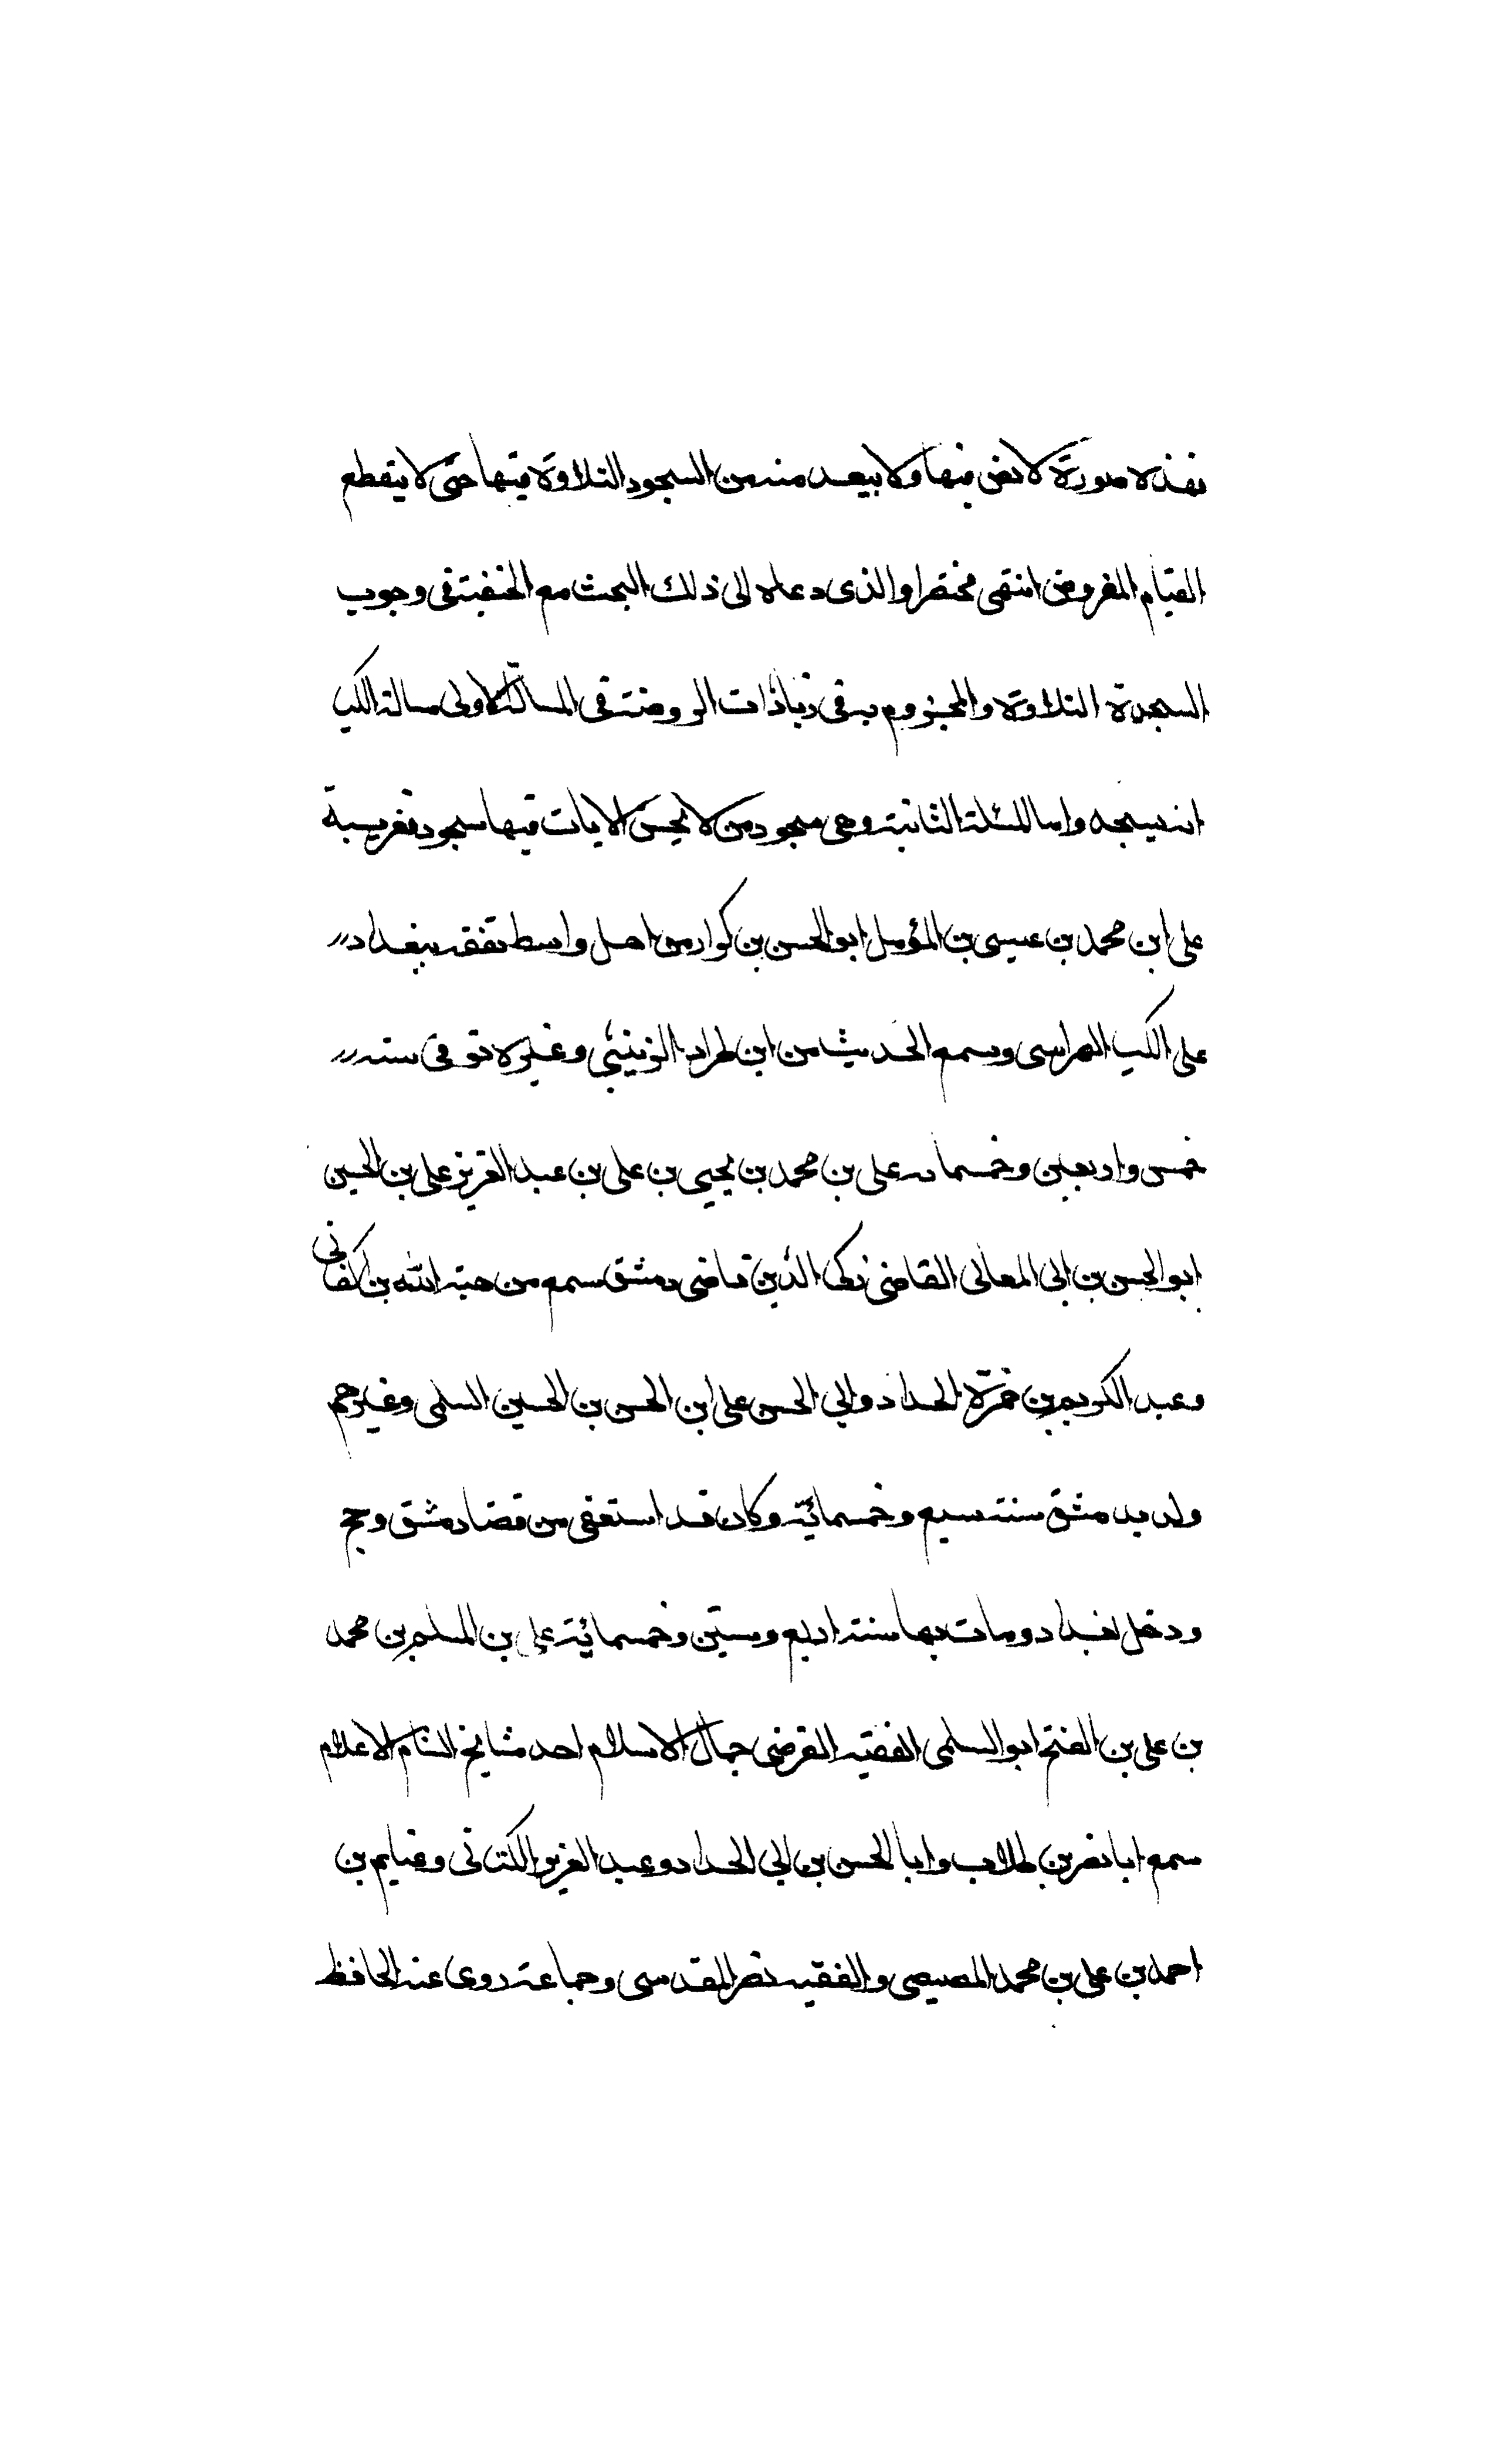 فهذه صورة لا نص فيها ولا يبعد منه من السجود التلاوة فيها حتى لا ينقطع
القيام المفروض انتهى مختصرا والذى دعاه الى ذلك البحث مع الحنفية فى وجوب
السجدة التلاوة والمجزوم به فى زيادات الروضة فى المسالة الاولى مسالة الكيا
انه يسجد واما المسئلة الثانية وهى سجود من لا يحسن الايات فيها سجود فغريبة
على ابن محمد بن عيسى بن المؤمل ابو الحسن بن كوار من اهل واسط تفقه ببغداد
على الكيا الهراسى وسمع الحديث من ابن طراد الزينبى وغيره توفى سنه
خمس واربعين وخمسمائه على بن محمد بن يحيى بن على بن عبد العزيز على بن الحسين
ابو الحسن بن ابى المعالى القاضى زكى الدين قاضى دمشق سمع من هبة الله بن اكفانى
وعبد الكريم بن حمزة الحداد وابى الحسن على ابن الحسن بن الحسين السلمى وغيرهم
ولد بدمشق سنة سبع وخمسمائة وكان قد استعفى من قضا دمشق وحج
ودخل بغداد ومات بها سنة اربع وستين وخمسمائة على بن المسلم بن محمد
بن على بن الفتح ابو السلمى الفقيه الفرضى جمال الاسلام احد مشايخ الشام الاعلام
سمع ابا نصر بن طلاب وابا الحسن بن ابى الحداد وعبد العزيز الكتانى وغنايم بن
احمد بن على بن محمد المصيصى والفقيه نصر المقدسى وجماعة روى عنه الحافظ